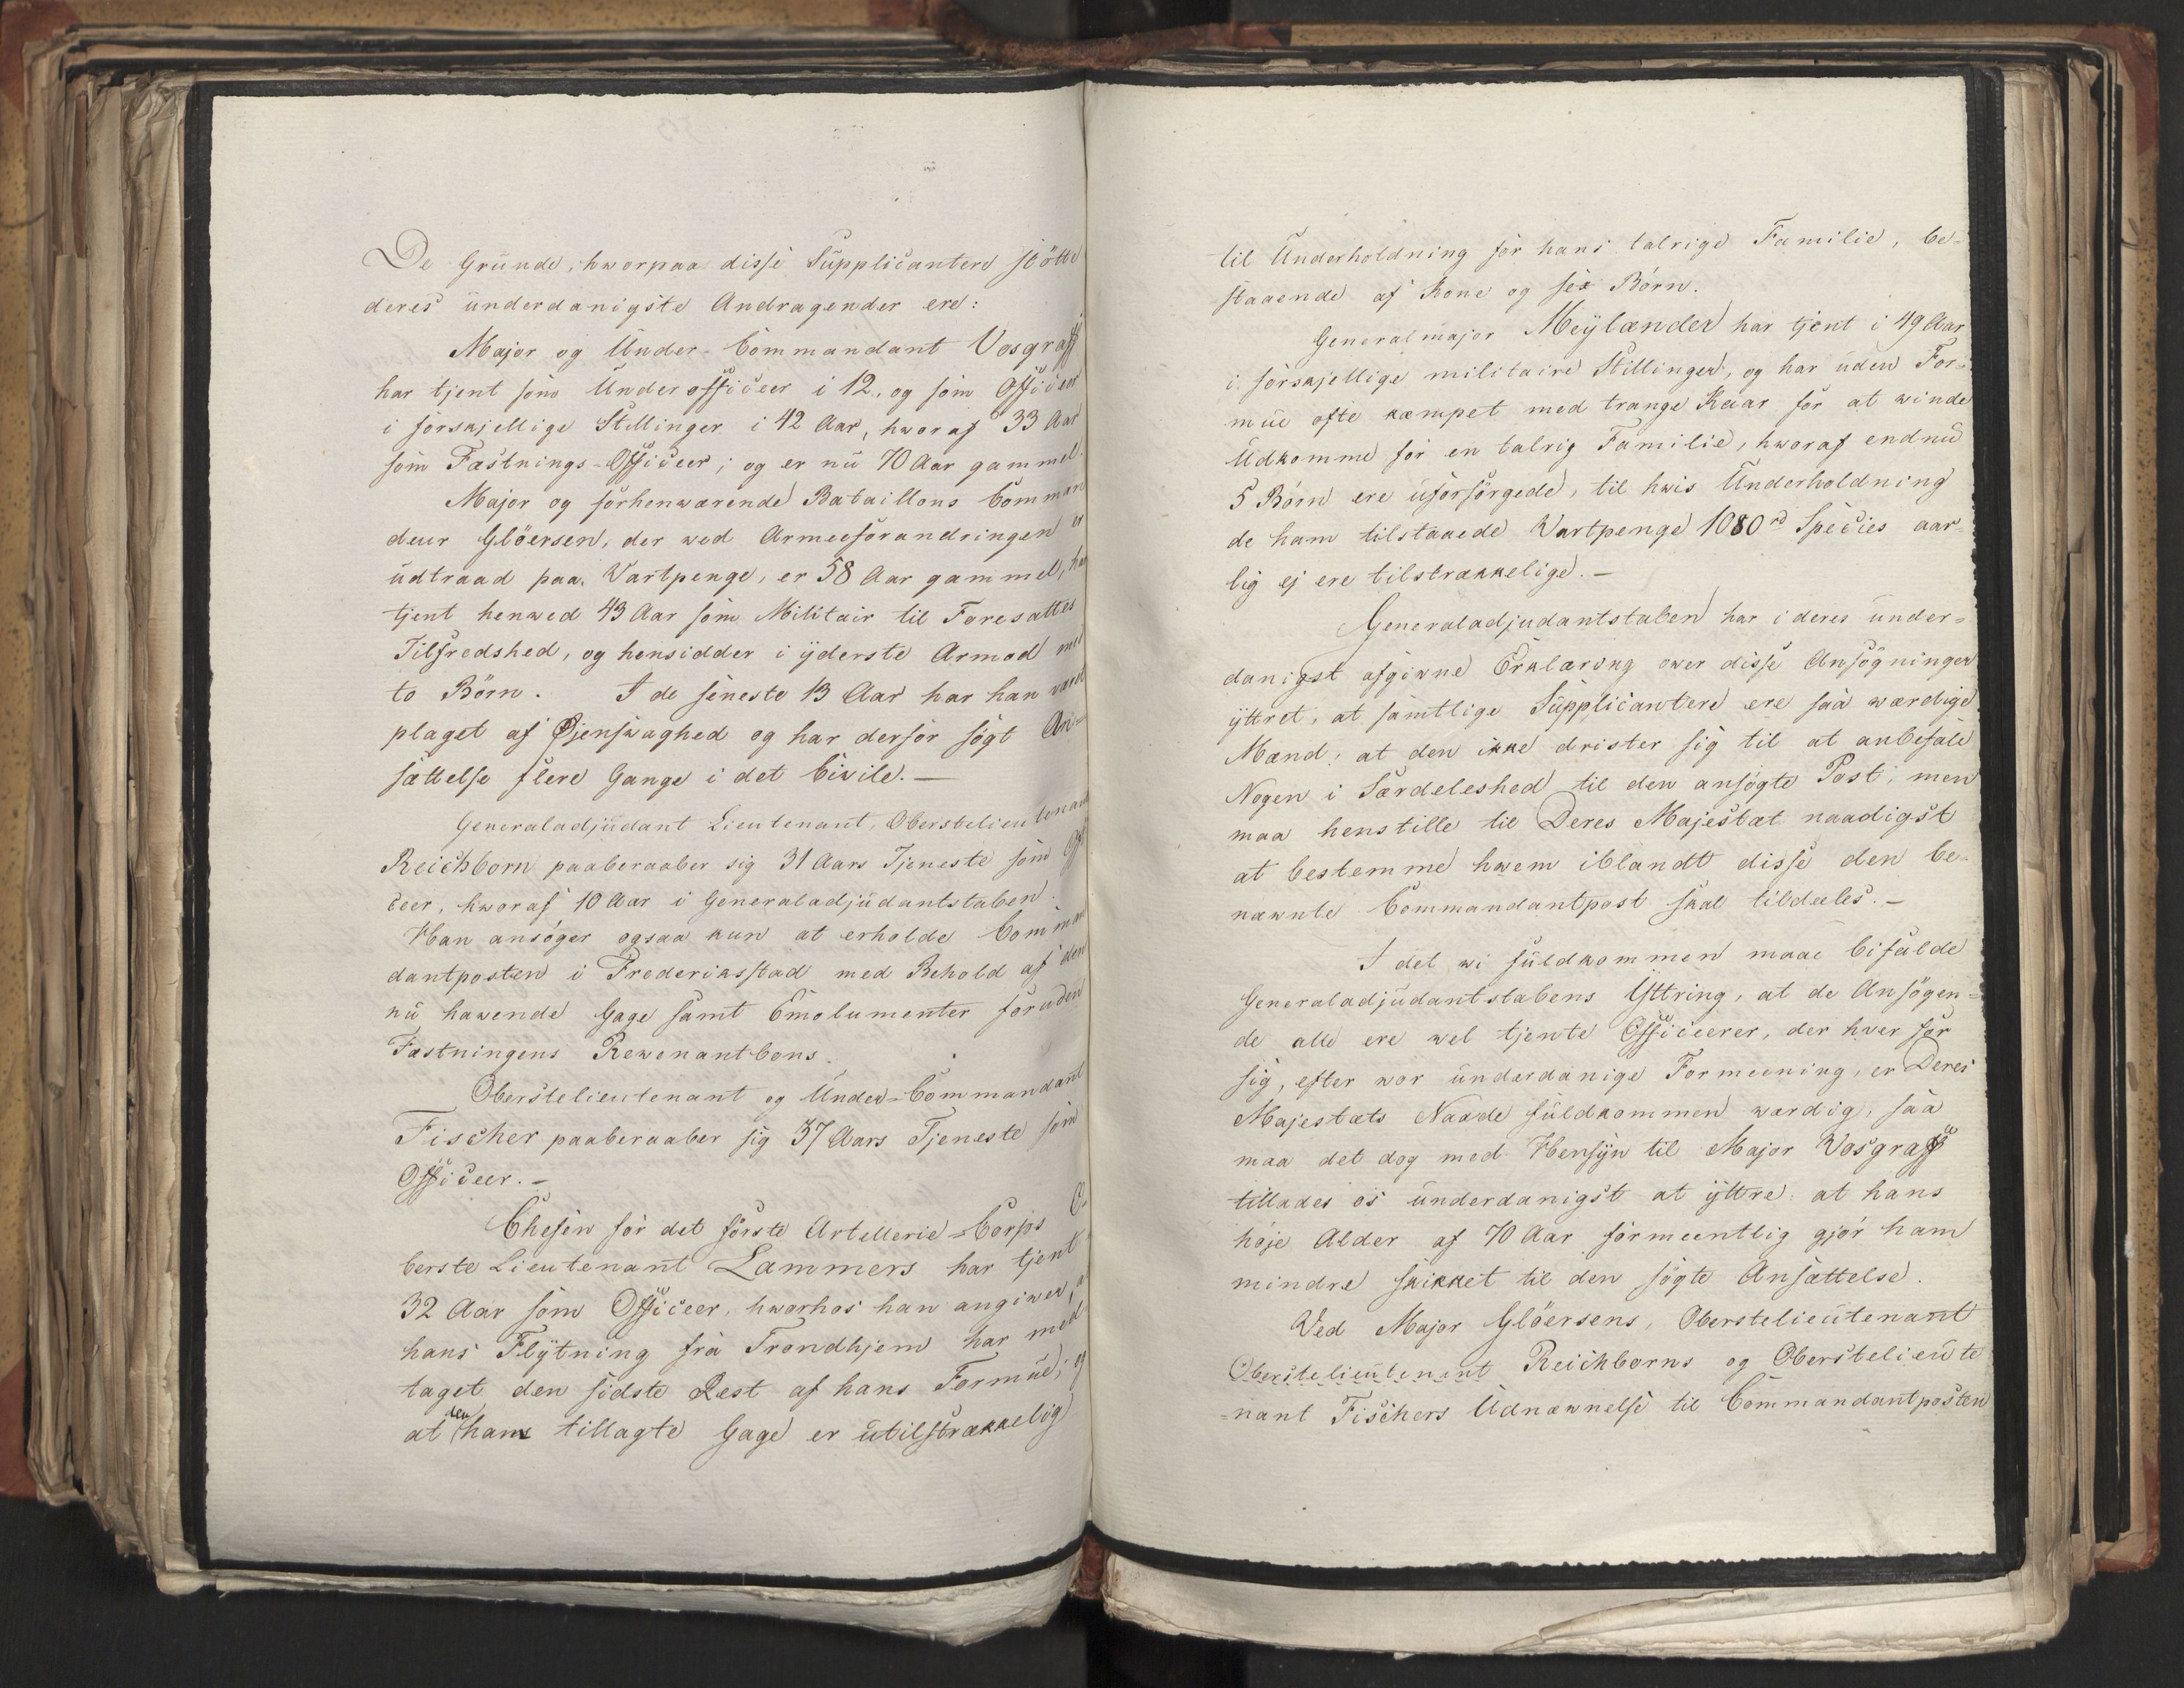 De Grunde, hvorpaa disse Supplicantere stötte
deres underdanigste Andragender ere:
Major og Under-Commandant Vosgraff
har tjent som Underofficeer i 12, og som Officeer
i forskjellige Stillinger i 42 Aar, hvoraf 33 Aar
som Fæstnings-Officeer; og er nu 70 Aar gammel.
Major og forhenværende Bataillons Comman
deur Glöersen, der ved Armeeforandringen er
udtraad paa Vartpenge, er 58 Aar gammel, har
tjent henved 43 Aar som Militair til Foresattes
Tilfredshed, og hensidder i yderste Armod med
to Börn. I de seneste 13 Aar har han været
plaget af Øjensvaghed og har derfor sögt An-
sættelse flere Gange i det Civile.—
Generaladjudant Lieutenant, Oberstelieutenant
Reichborn paaberaaber sig 31 Aars Tjeneste som Offi
ceer, hvoraf 10 Aar i Generaladjudantstaben.
Han ansöger ogsaa kun at erholde Comman
dantposten i Frederiksstad med Behold af den
nu havende Gage samt Emolumenter foruden
Fæstningens Revenantbons.
Oberstelieutenant og Under-Commandant
Fischer paaberaaber sig 37 Aars Tjeneste som
Officeer.—
Chefen for det förste Artellerie-Corps O-
berste Lieutenant Lammers har tjent
32 Aar som Officeer, hvorhos han angiver, at
hans Flytning fra Trondhjem har med
taget den sidste Rest af hans Formue, og
at den ham tillagte Gage er utilstrækkelig
til Underholdning for hans talrige Familie, be-
staaende af Kone og sex Börn.
Generalmajor Meylænder har tjent i 49 Aar
i forskjellige militaire Stillinger, og har uden For-
mue ofte kæmpet med trange Kaar for at vinde
Udkomme for en talrig Familie, hvoraf endnu
5 Börn ere uforsörgede, til hvis Underholdning
de ham tilstaaede Vartpenge 1080 rd Species aar-
lig ej ere tilstrækkelige.—
Generaladjudantstaben har i deres under-
danigst afgivne Erklæring over disse Ansögninger
yttret, at samtlige Supplicantere ere saa værdige
Mænd, at den ikke drister sig til at anbefale
Nogen i Særdeleshed til den ansögte Post, men
maa henstille til Deres Majestæt naadigst
at bestemme hvem iblandt disse den be-
nævnte Commandantpost skal tildeeles.—
I det vi fuldkommen maae bifalde
Generaladjudantstabens Yttring, at de Ansögen-
de alle ere vel tjente Officeerer, der hver for
sig, efter vor underdanige Formeening, er Deres
Majestæts Naade fuldkommen værdig, saa
maa det dog med Hensyn til Major Vosgraff
tillades os underdanigst at yttre at hans
höje Alder af 70 Aar formeentlig gjör ham
mindre skikket til den sögte Ansættelse.
Ved Major Glöersens, Oberstelieutenant
Oberstelieutenant Reichborns og Oberstelieute
-nant Fischers Udnævnelse til Commandantposten